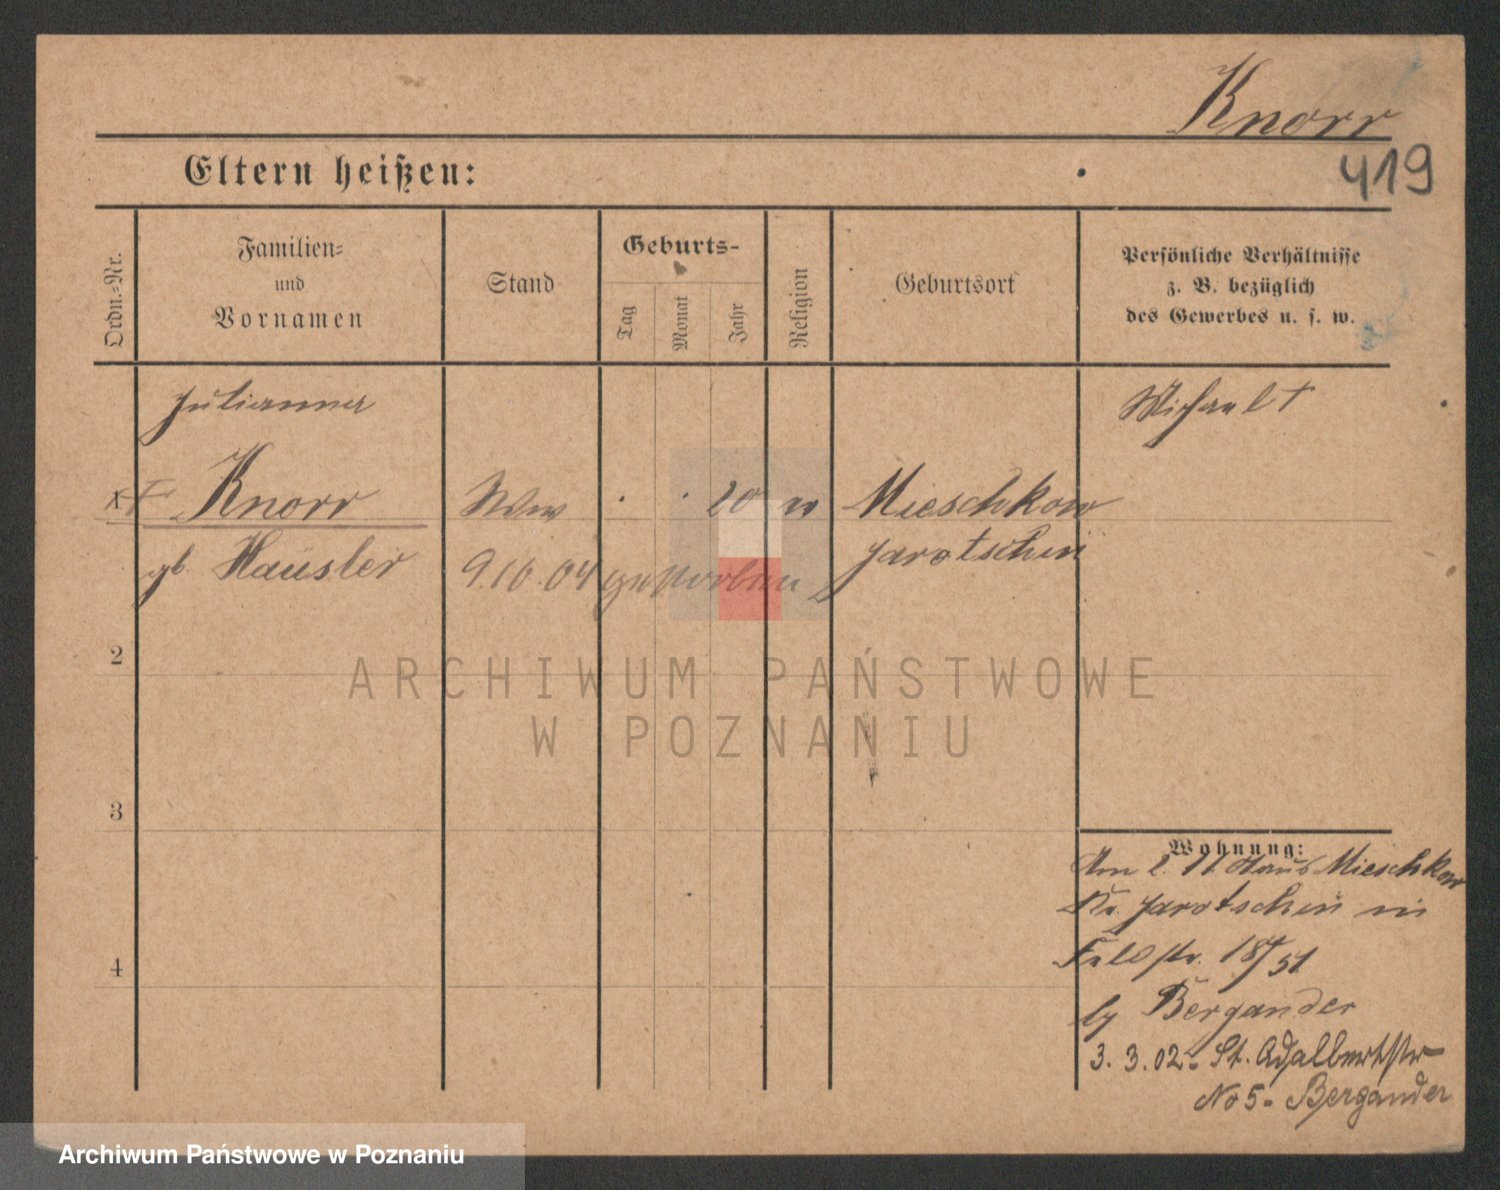 Knorr
419
Eltern heißen:
Ordn.-Nr.
Familien-
und
Vornamen
Stand
Geburts-
Tag
Monat
Jahr
Religion
Geburtsort
Persönliche Verhältnisse
z. B. bezüglich
des Gewerbes u. s. w.
Julianna
Michael †
Knorr Ww 20 Mieschkow
gb. Häusler 9.10.04 gestorben Jarotschin
2
ARCHIWUM PAŃSTWOWE
W POZNANIU
3
4
Wohnung:
Am 2. 11. aus Mieschkow
Kr. Jarotschin in
Feldstr. 18/
by Bergander
3. 3. 02. St. Adalbertstr
No 5. Bergander
Archiwum Państwowe w Poznaniu